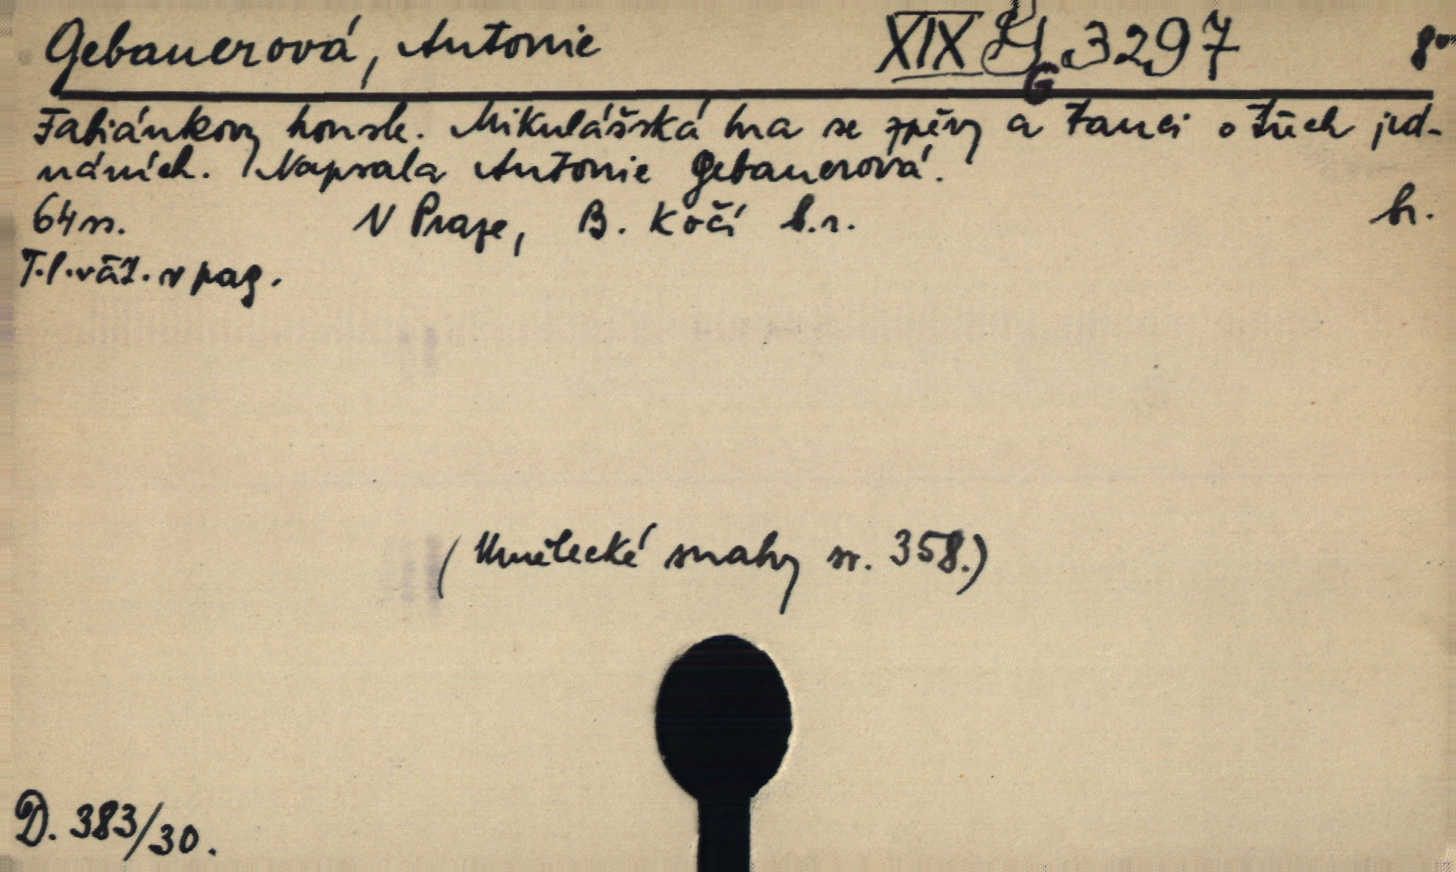 Gebauerová, Antonie XIX G 3297 8°
Fabiánkovy housle. Mikulášská hra se zpěvy a tanci o třech jed-
náních. Napsala Antonie Gebauerová.
64 ss. V Praze, B. Kočí b.r. br.
T.l. váz. v pag.
(Umělecké snahy sv. 358.)
D. 383/30.